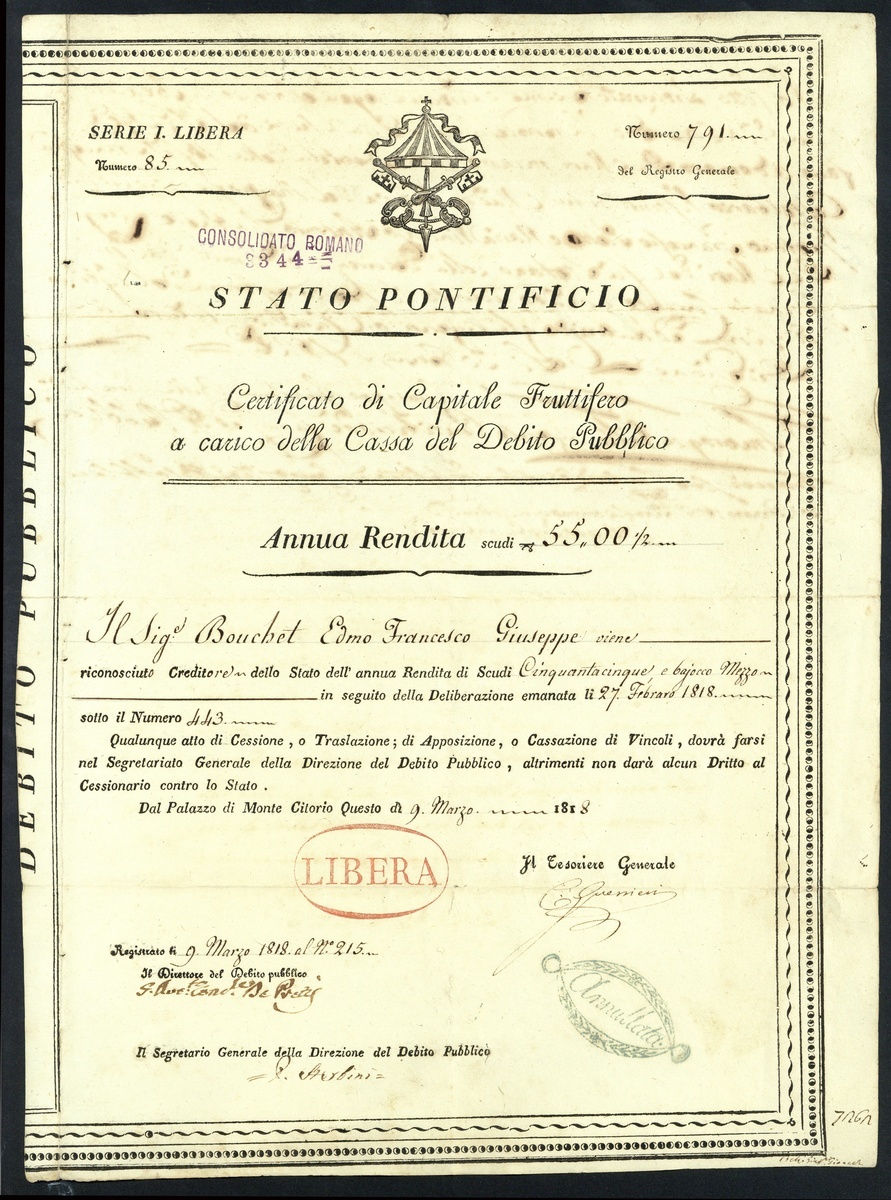 SERIE I. LIBERA
Numero 85.
Numero 791.
del Registro Generale
CONSOLIDATO ROMANO
3344
STATO PONTIFICIO
Certificato di Capitale Fruttifero
a carico della Cassa del Debito Pubblico
Annua Rendita scudi 55,,00 1/2
Il Sigr Bouchet Edmo Francesco Giuseppe viene
riconosciuto Creditore dello Stato dell'annua Rendita di Scudi Cinquantacinque, e bajocco Mezzo
in seguito della Deliberazione emanata li 27. Febraro 1818.
sotto il Numero 443.
Qualunque atto di Cessione, o Traslazione; di Apposizione, o Cassazione di Vincoli, dovrà farsi
nel Segretariato Generale della Direzione del Debito Pubblico, altrimenti non darà alcun Dritto al
Cessionario contro lo Stato.
Dal Palazzo di Monte Citorio Questo dì 9. Marzo. 1818
LIBERA
Il Tesoriere Generale
Guerrieri
Registrato li 9. Marzo 1818. al N.º 215.
Il Direttore del Debito pubblico
Annullato.
Il Segretario Generale della Direzione del Debito Pubblico
Sterbini
DEBITO PUBBLICO